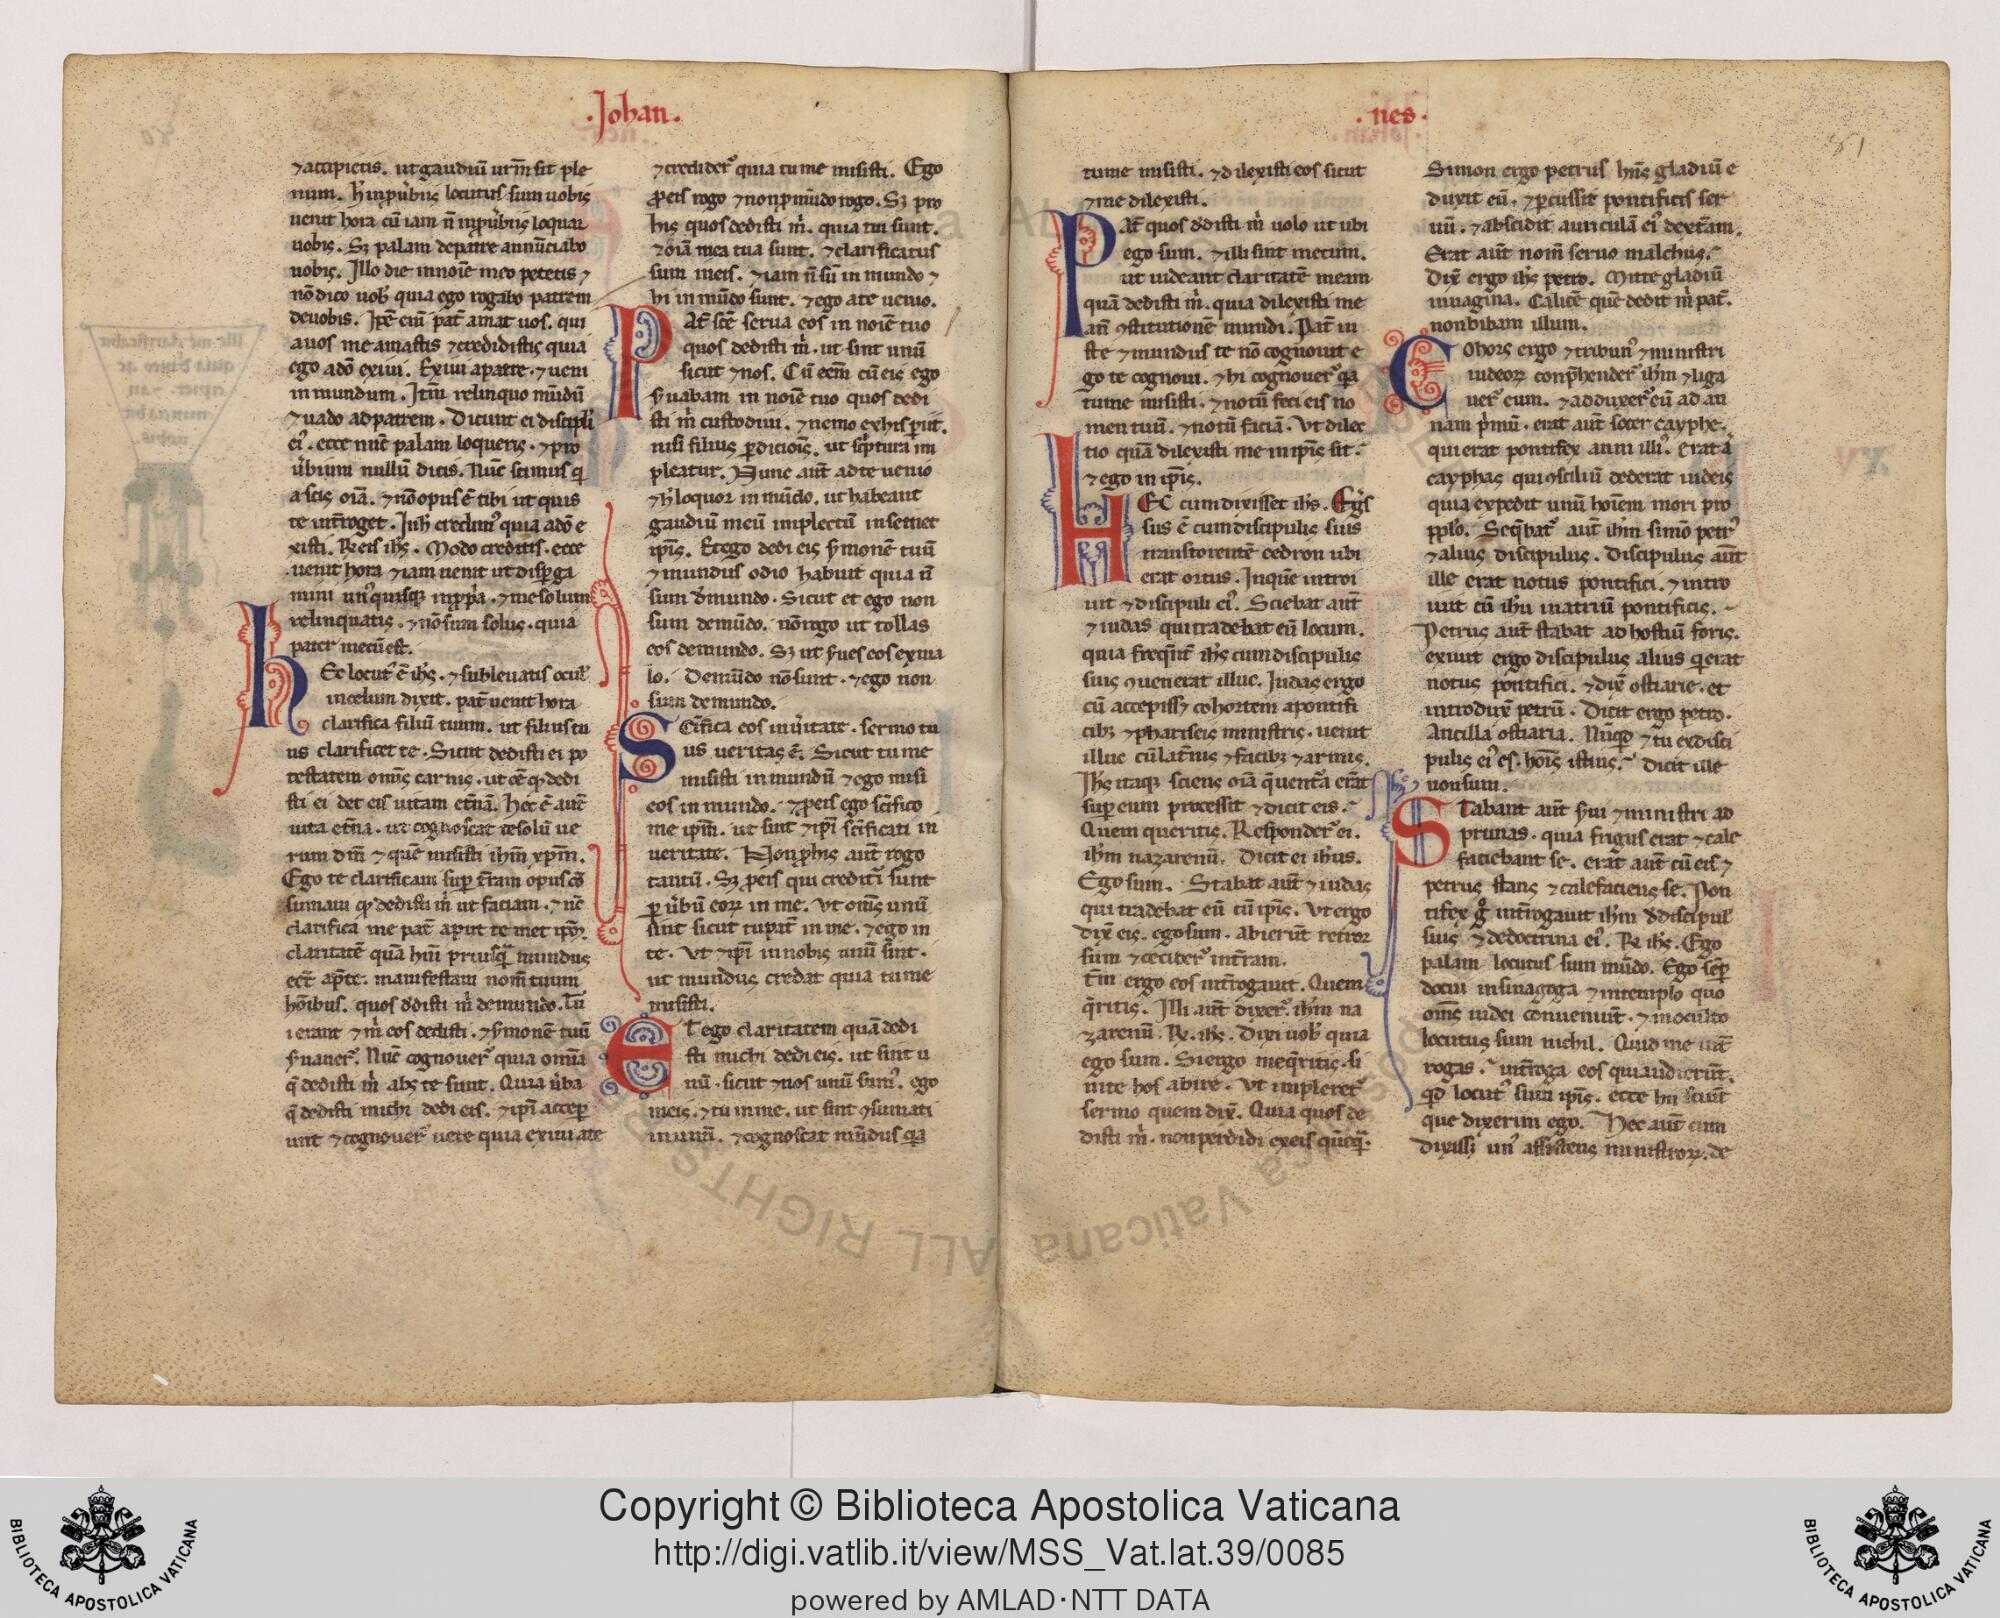 ·Johan·
⁊accipietis. ut gaudiū urm̄ sit ple
num. H̄ in ꝓu̇biis locutus sum uobis
uenit hora cū iam n̄ in ꝓu̇biis loquar
uobis. Sꝫ palam de patre annūciabo
uobis. Illo die in noīe meo petetis ⁊
nō dico uob̵ quia ego rogabo patrem
de uobis. Ip̄e eni᷒ pat̄ amat uos. qui
a uos me amastis ⁊credidistis quia
ego a dō exiui. Exiui a patre. ⁊ueni
in mundum. Itm̄ relinquo mūdū
⁊uado ad patrem. Dicunt ei discipli
ei᷒. ecce nūc palam loqueris. ⁊pro
u̇bium nullū dicis. Nūc scimus q̇
a scis oīa. ⁊nō opus ē tibi ut quis
te int̄roget. In h̵ credim᷒ quia a dō e
xisti. R̄ eis ih̄s. Modo creditis. ecce
uenit hora ⁊iam uenit ut disꝑga
mini un᷒quisqꝫ in ꝓpria. ⁊me solum
relinquatis. ⁊nō sum solus. quia
pater mecū est.
hEc locut᷒ ē ih̄s. ⁊subleuatis ocul̵
in celum dixit. pat̄ uenit hora
clarifica filiū tuum. ut filius tu
us clarificet te. Sicut dedisti ei po
testatem omīs carnis. ut oē qđ dedi
sti ei det eis uitam et̄nā. Hec ē aut̄
uita et̄na. ut cognoscāt te solū ue
rum dm̄ ⁊quē misisti ihm̄ xp̄m.
Ego te clarificaui suꝑ t̄ram opus cō
sumaui qđ dedisti m̊ ut faciam. ⁊nc̄
clarifica me pat̄ aput te met ip̄m.
claritatē quā hui priusq̄ mundus
eēt ap̄ te. manifestaui nom̄ tuum
hōibus. quos d̵disti m̊ de mundo. Tu
i erant ⁊m̊ eos dedisti. ⁊ẜmonē tuū
ẜuauer᷒. Nūc cognouer᷒ quia omīa
q̄ dedisti m̊ abs te sunt. Quia u̇ba
q̄ dedisti michi dedi eis. ⁊ip̄i acceꝑ
unt ⁊cognouer᷒ uere quia exiui a te
⁊crediderˀ quia tu me misisti. Ego
ꝓ eis rogo ⁊non ꝓ mūdo rogo. Sꝫ pro
his quos dedisti m̊. quia tui sunt.
⁊oīa mea tua sunt. ⁊clarificatus
sum in eis. ⁊iam n̄ sū in mundo ⁊
hi in mūdo sunt. ⁊ego a te uenio.
PAt̄ sc̄e serua eos in noīe tuo
quos dedisti m̊. ut sint unū
sicut ⁊nos. Cū eēm cū eis ego
ẜuabam in noīe tuo quos dedi
sti m̊ custodiui. ⁊nemo ex his ꝑiit.
nisi filius ꝑdiciōis. ut sc̄ptura im
pleatur. Nunc aut̄ ad te uenio
⁊h̵ loquor in mūdo. ut habeant
gaudiū meū impletū in semet
ip̄is. Et ego dedi eis ẜmonē tuū
⁊mundus odio habuit quia n̄
sunt de mundo. Sicut et ego non
sum de mūdo. nō rogo ut tollas
eos de mundo. Sꝫ ut ẜues eos ex ma
lo. De mūdo nō sunt. ⁊ego non
sum de mundo.
SC̄ifica eos in u̇itate. sermo tu
us ueritas ē. Sicut tu me
misisti in mundū ⁊ego misi
eos in mundo. ⁊ꝓ eis ego sc̄ifico
me ip̄m. ut sint ⁊ip̄i sc̄ificati in
ueritate. Non ꝓ his aut̄ rogo
tantū. Sꝫ ꝓ eis qui credit̄i sunt
ꝑ u̇bū eorꝝ in me. Vt om̄s unū
sint sicut tu pat̄ in me. ⁊ego in
te. Vt ⁊ip̄i in nobis unū sint.
ut mundus credat quia tu me
misisti.
ET ego claritatem quā dedi
sti michi dedi eis. ut sint u
nū. sicut ⁊nos unū sum᷒. ego
in eis. ⁊tu in me. ut sint ꝯsumati
in unū. ⁊cognoscat mūdus q̄a
·nes·
81
tu me misisti. ⁊dilexisti eos sicut
⁊me dilexisti.
PAt̄ quos d̵disti m̊ uolo ut ubi
ego sum. ⁊illi sint mecum.
ut uideant claritatē meam
quā dedisti m̊. quia dilexisti me
an̄ ꝯstitutionē mundi. Pat̄ iu
ste ⁊mundus te nō cognouit e
go te cognoui. ⁊hi cognouer᷒ q̄a
tu me misisti. ⁊notū feci eis no
men tuū. ⁊notū faciā. Vt dilec
tio quā dilexisti me in ip̄is sit.
⁊ego in ip̄is.
HEC cum dixisset ih̄s. Eg̊s
sus ē cum discipulis suis
trans torrentē cedron ubi
erat ortus. In quē introi
uit ⁊discipuli ei᷒. Sciebat aut̄
⁊iudas qui tradebat eū locum.
quia freq̄nt̄ ih̄s cum discipulis
suis ꝯuenerat illuc. Iudas ergo
cū accepissꝫ cohortem a pontifi
cibꝫ ⁊phariseis ministris. uenit
illuc cū lat̄nis ⁊facibꝫ ⁊armis.
Ih̄s itaqꝫ sciens oīa q̄ uent̄a erāt
suꝑ eum processit ⁊dicit eis.
Quem queritis. Responder᷒ ei.
ih̄m nazarenū. Dicit ei ih̄us.
Ego sum. Stabat aut̄ ⁊iudas
qui tradebat eū cū ip̄is. Vt ergo
dix̄ eis. ego sum. abierūt retror
sum ⁊cecider᷒ in t̄ram.
It̄m ergo eos int̄rogauit. Quem
q̄ritis. Illi aut̄ dixer᷒. ih̄m na
zarenū. R̄. ih̄s. Dixi uob̵ quia
ego sum. Si ergo me q̄ritis. si
nite hos abire. Vt impleret᷒
sermo quem dix̄. Quia quos de
disti m̊. non perdidi ex eis quēq̄.
Simon ergo petrus hn̄s gladiū e
duxit eū. ⁊ꝑcussit pontificis ser
uū. ⁊abscidit auriculā ei᷒ dext̄am.
Erat aut̄ nom̄ seruo malchus.
Dix̄ ergo ih̄s petro. Mitte gladiū
in uagina. Calicē quē dedit m̊ pat̄.
non bibam illum.
COhors ergo ⁊tribun᷒ ⁊ministri
iudeorꝝ cōp̄hender᷒ ih̄m ⁊liga
uer᷒ eum. ⁊adduxer᷒ eū ad an
nam p̊mū. erat aut̄ socer cayphe.
qui erat pontifex anni illi᷒. Erat ā
cayphas qui ꝯsiliū dederat iudeis
quia expedit unū hoīem mori pro
pp̄lo. Seq̄bat᷒ aut̄ ih̄m simō petr᷒
⁊alius discipulus. Discipulus aūt
ille erat notus pontifici. ⁊intro
iuit cū ih̄u in atriū pontificis.
Petrus aut̄ stabat ad hostiū foris.
exiuit ergo discipulus alius q̇ erat
notus pontifici. ⁊dix̄ ostiarie. et
introdux̄ petrū. Dicit ergo petro.
Ancilla ostiaria. Nūqđ ⁊tu ex disci
pulis ei᷒ es. hoīs istius. Dicit ille
non sum.
STabant aut̄ ẜui ⁊ministri ad
prunas. quia frigus erat ⁊cale
faciebant se. erat aut̄ cū eis ⁊
petrus stans ⁊calefaciens se. Pon
tifex g̊ int̄rogauit ih̄m d̵ discipul̵
suis ⁊de doctrina ei᷒. R̄ ih̄s. Ego
palam locutus sum mūdo. Ego sēꝑ
docui in sinagoga ⁊in templo quo
om̄s iudei conueniūt. ⁊in oculto
locutus sum nichil. Quid me int̄
rogas. int̄roga eos qui audierūt.
qđ locut᷒ sum ip̄is. ecce hii sciūt
que dixerim ego. Hec aut̄ cum
dixissꝫ un᷒ assistens ministrorꝝ. de
Copyright © Biblioteca Apostolica Vaticana
http://digi.vatlib.it/view/MSS_Vat.lat.39/0085
powered by AMLAD·NTT DATA
BIBLIOTECA APOSTOLICA VATICANA
BIBLIOTECA APOSTOLICA VATICANA